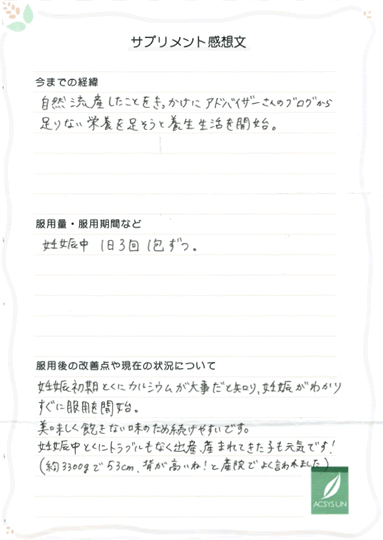 サプリメント感想文
今までの経緯
自然流産したことをきっかけに アドバイザーさんのブログから
足りない栄養を足そうと養生生活を開始。
服用量・服用期間など
妊娠中 1日3回 1包ずつ。
服用後の改善点や現在の状況について
妊娠初期とくにカルシウムが大事だと知り、妊娠がわかり
すぐに服用を開始。
美味しく飽きない味のため続けやすいです。
妊娠中とくにトラブルもなく出産、産まれてきた子も元気です!
(約3300gで53cm、背が高いね!と産院でよく言われました)
ACSYSUN